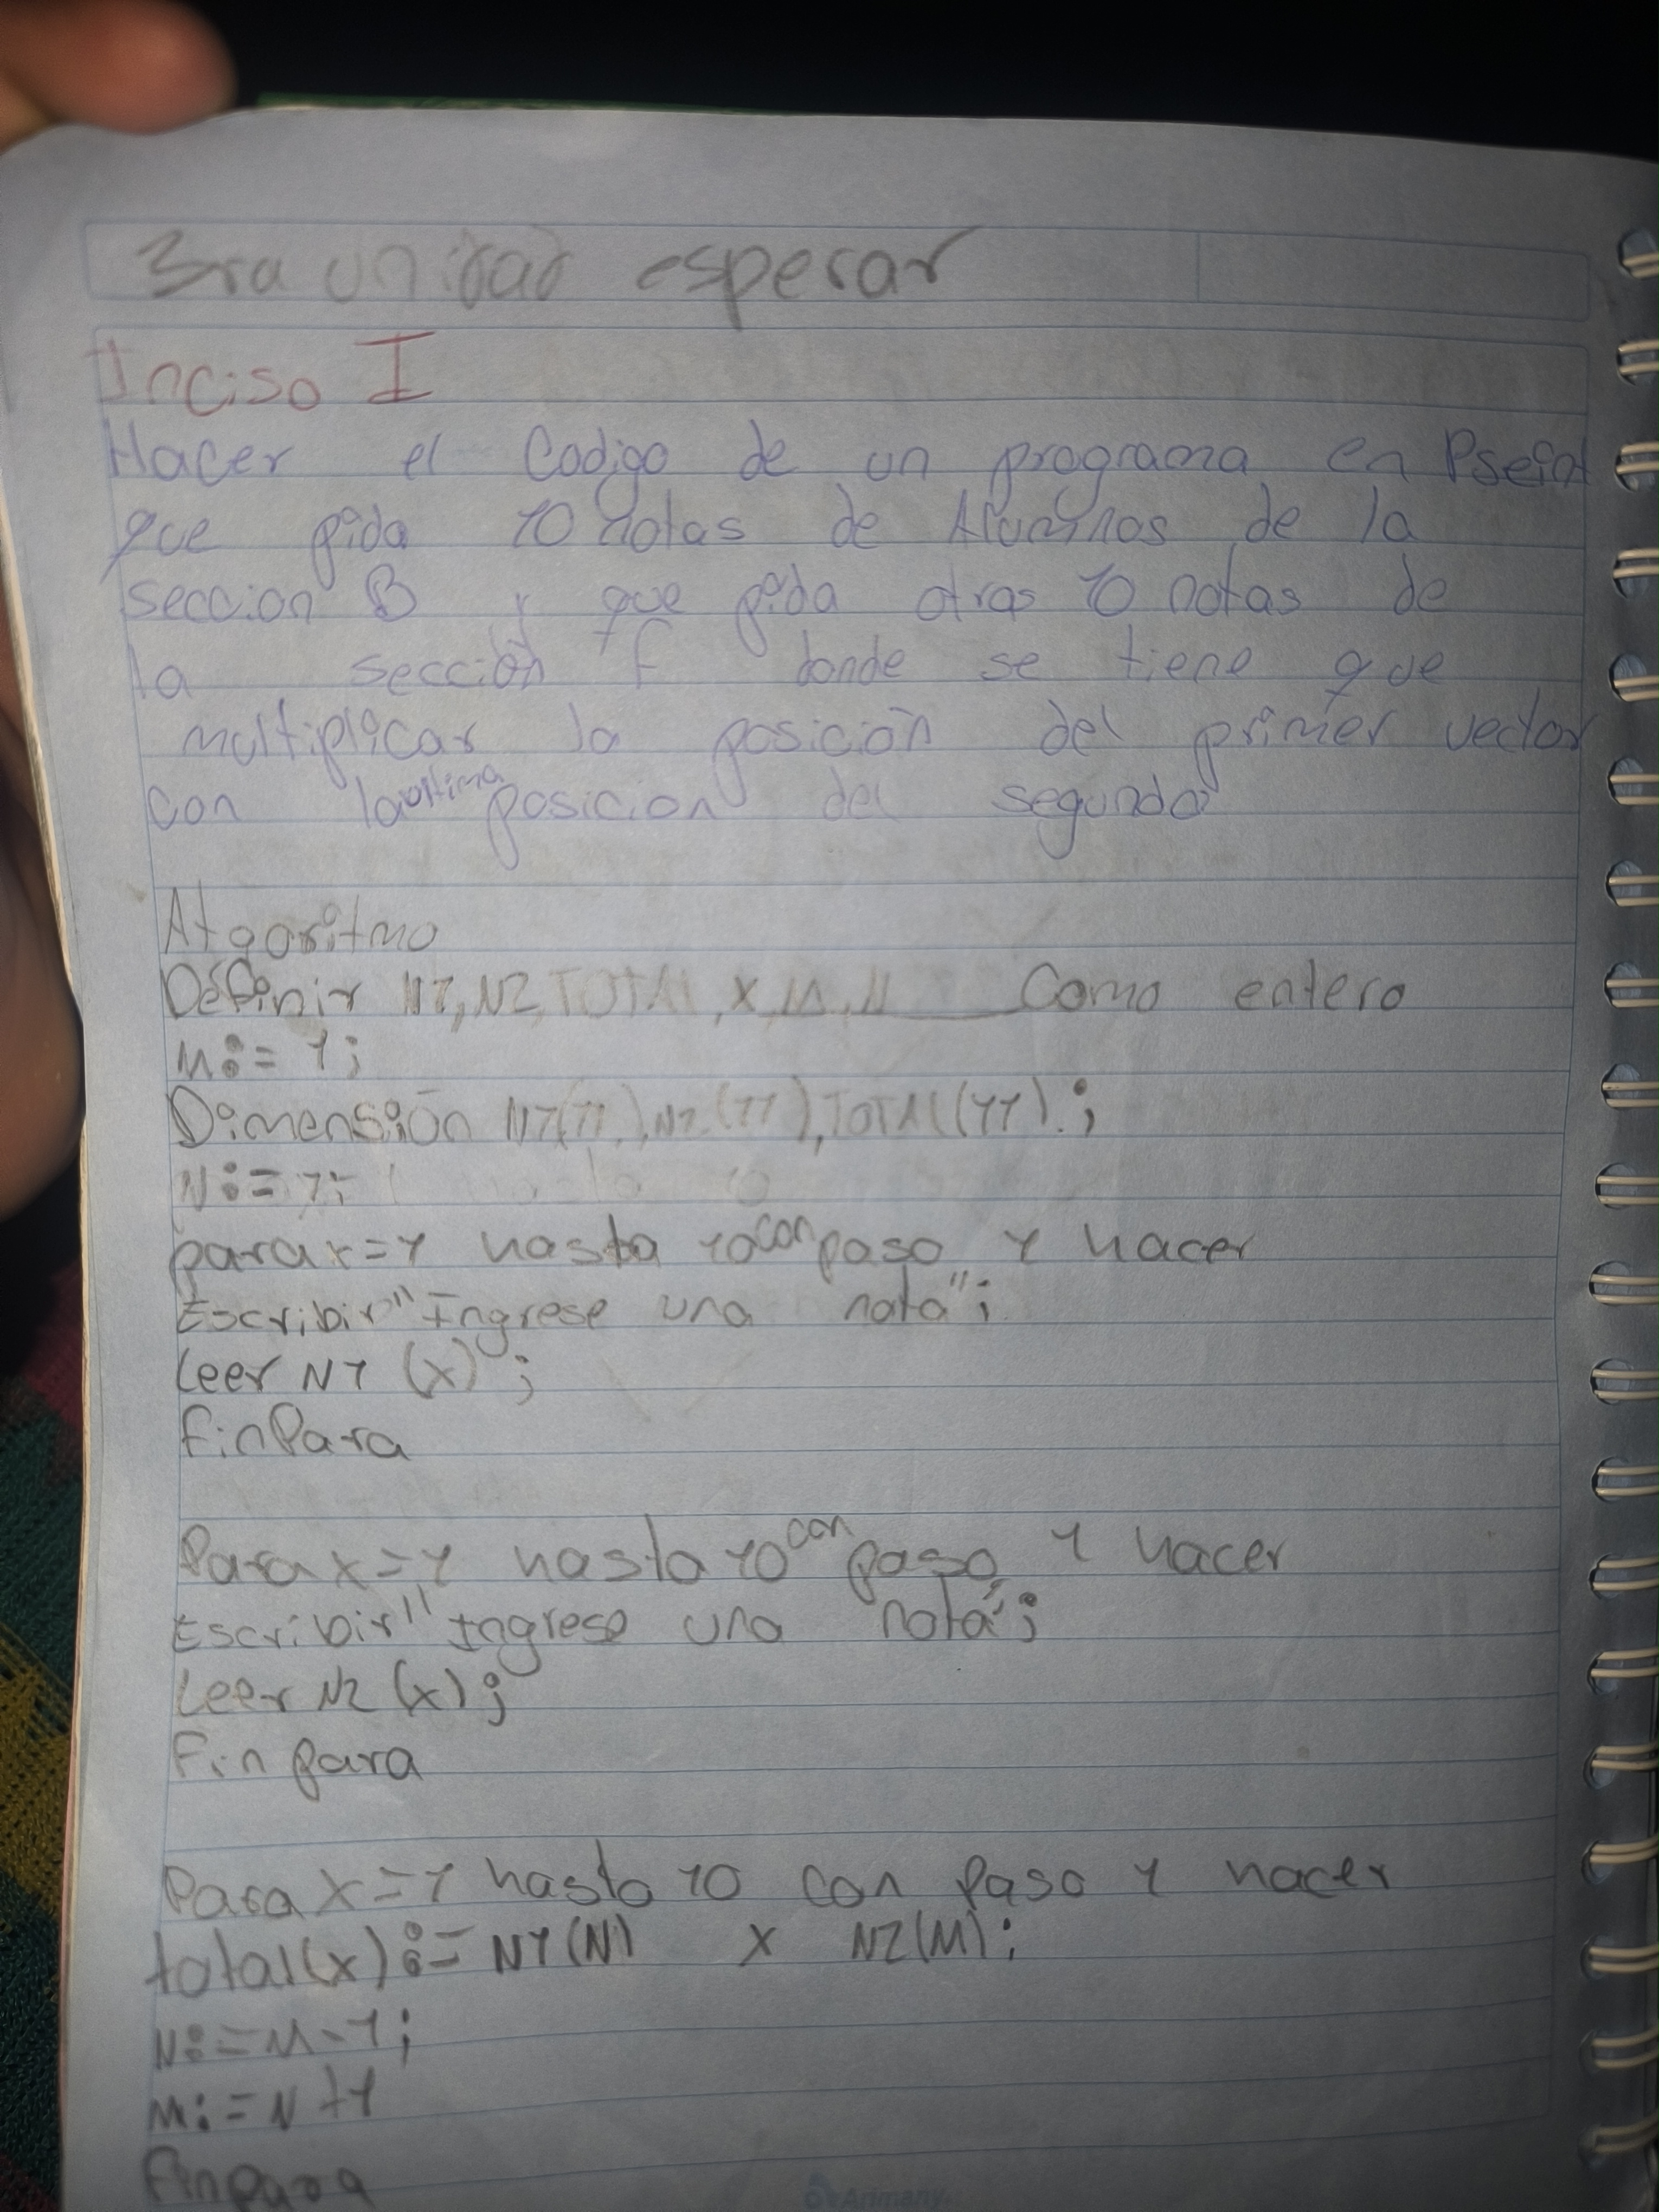 3ra unidad esperar
Inciso I
Hacer el Codigo de un programa en Pseint
que pida 10 notas de Alumnos de la
seccion B y que pida otras 10 notas de
la sección F donde se tiene que
multiplicar la posición del primer vector
con la ultima posicion del segundo
Algoritmo
Definir N1, N2, TOTAL, X, M, N Como entero
M:= 1;
Dimensión N1(11), N2(11), TOTAL(11);
N:= 1;
para x=1 hasta 10 con paso 1 hacer
Escribir "Ingrese una nota";
Leer N1 (x);
FinPara
Para x=1 hasta 10 con paso 1 hacer
Escribir "Ingrese una nota";
Leer N2 (x);
Fin para
Para x=1 hasta 10 con paso 1 hacer
total(x):= N1(N) x N2(M);
N:=M-1;
M:=N+1
Finpara
Arimany